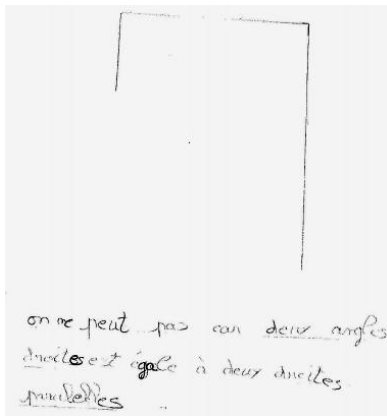 on ne peut pas car deux angles
droites est égale à deux droites
paralelles